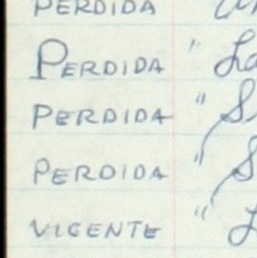 PERDIDA
PERDIDA " La
PERDIDA " S
PERDIDA " S
VICENTE " L